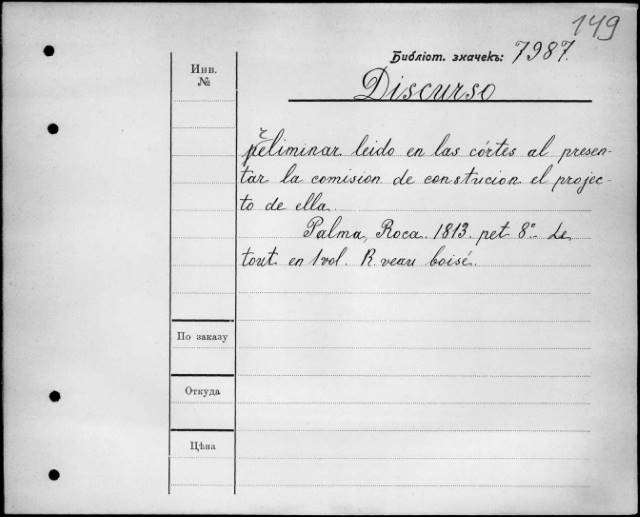 149
Библіот. значекъ: 7987.
Инв.
№
Discurso
preliminar leido en las córtes al presen-
tar la comision de constucion el projec-
to de ella.
Palma, Roca. 1813. pet 8º. Le
tout en 1 vol. R. veau boisé.
По заказу
Откуда
Цѣна